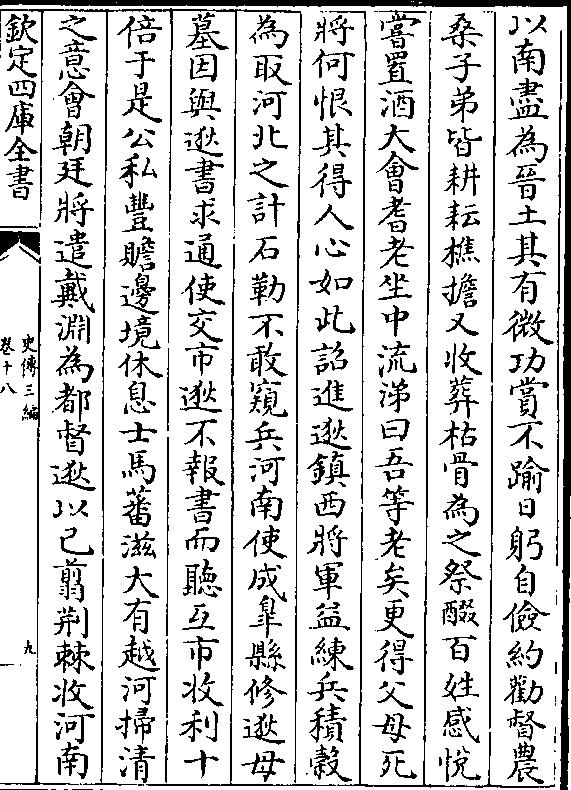 以南盡為晉土其有微功賞不踰日躬自儉約勸督農
桑子弟皆耕耘樵擔又收葬枯骨為之祭醊百姓感悅
嘗置酒大會耆老坐中流涕曰吾等老矣更得父母死
將何恨其得人心如此詔進逖鎮西將軍益練兵積榖
為取河北之計石勒不敢窺兵河南使成臯縣修逖母
墓因與逖書求通使交市逖不報書而聽互市收利十
倍于是公私豐贍邊境休息士馬蕃滋大有越河掃清
之意會朝廷將遣戴淵為都督逖以已翦荆棘收河南
欽定四庫全書
史傳三編
卷十八
九